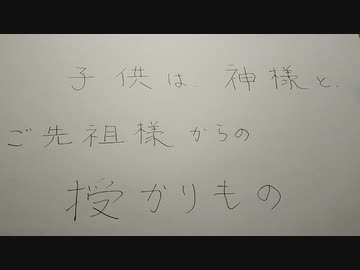 子供は、神様と、
ご先祖様からの
授かりもの